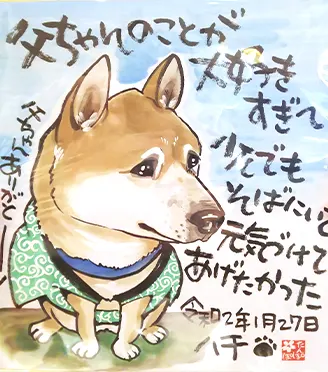 父ちゃんのことが
大好き
すぎて
少しでも
そばにいて
元気づけて
あげたかった
令和2年1月27日
ハチ
父ちゃんありがとー